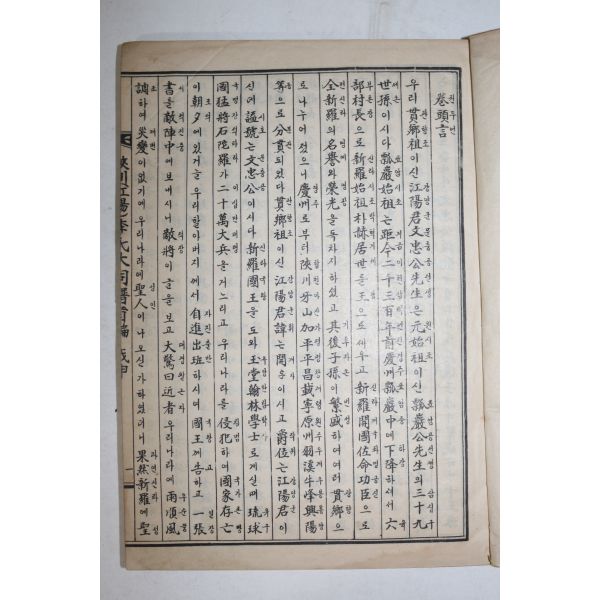 卷頭言
우리 貫鄕祖이신 江陽君文忠公先生은 元始祖이신 瓢巖公先生의 三十九
世孫이시다 瓢巖始祖는 距今二千三百年前 慶州瓢巖中에 下降하셔서 六
部村長으로 新羅始祖朴赫居世를 王으로 세우고 新羅開國佐命功臣으로
全新羅의 名譽와 榮光을 독차지하였고 其後子孫이 繁盛하여 여러 貫鄕으
로 나누어졌으니 慶州로부터 陜川 牙山 加平 平昌 載寧 原州 羽溪 牛峰 興陽
等으로 分貫되었다 貫鄕祖이신 江陽君諱는 開이시고 爵位는 江陽君이
시며 諡號는 文忠公이시다 新羅國王을 도와 玉堂翰林學士로 계실때 琉球
國猛將石陀羅가 二十萬大兵을 거느리고 우리나라를 侵犯하여 國家存亡
이 朝夕에 있거늘 우리할아버지께서 自進出班하시여 國王께 告하고 一張
書를 敵陣中에 보내시니 敵將이 글을 보고 大驚曰 近者 우리나라에 雨順風
調하여 災變이 없기에 우리나라에 聖人이 나오신가 하였더니 果然 新羅에 聖
陜川江陽李氏大同譜首編 戊申
一